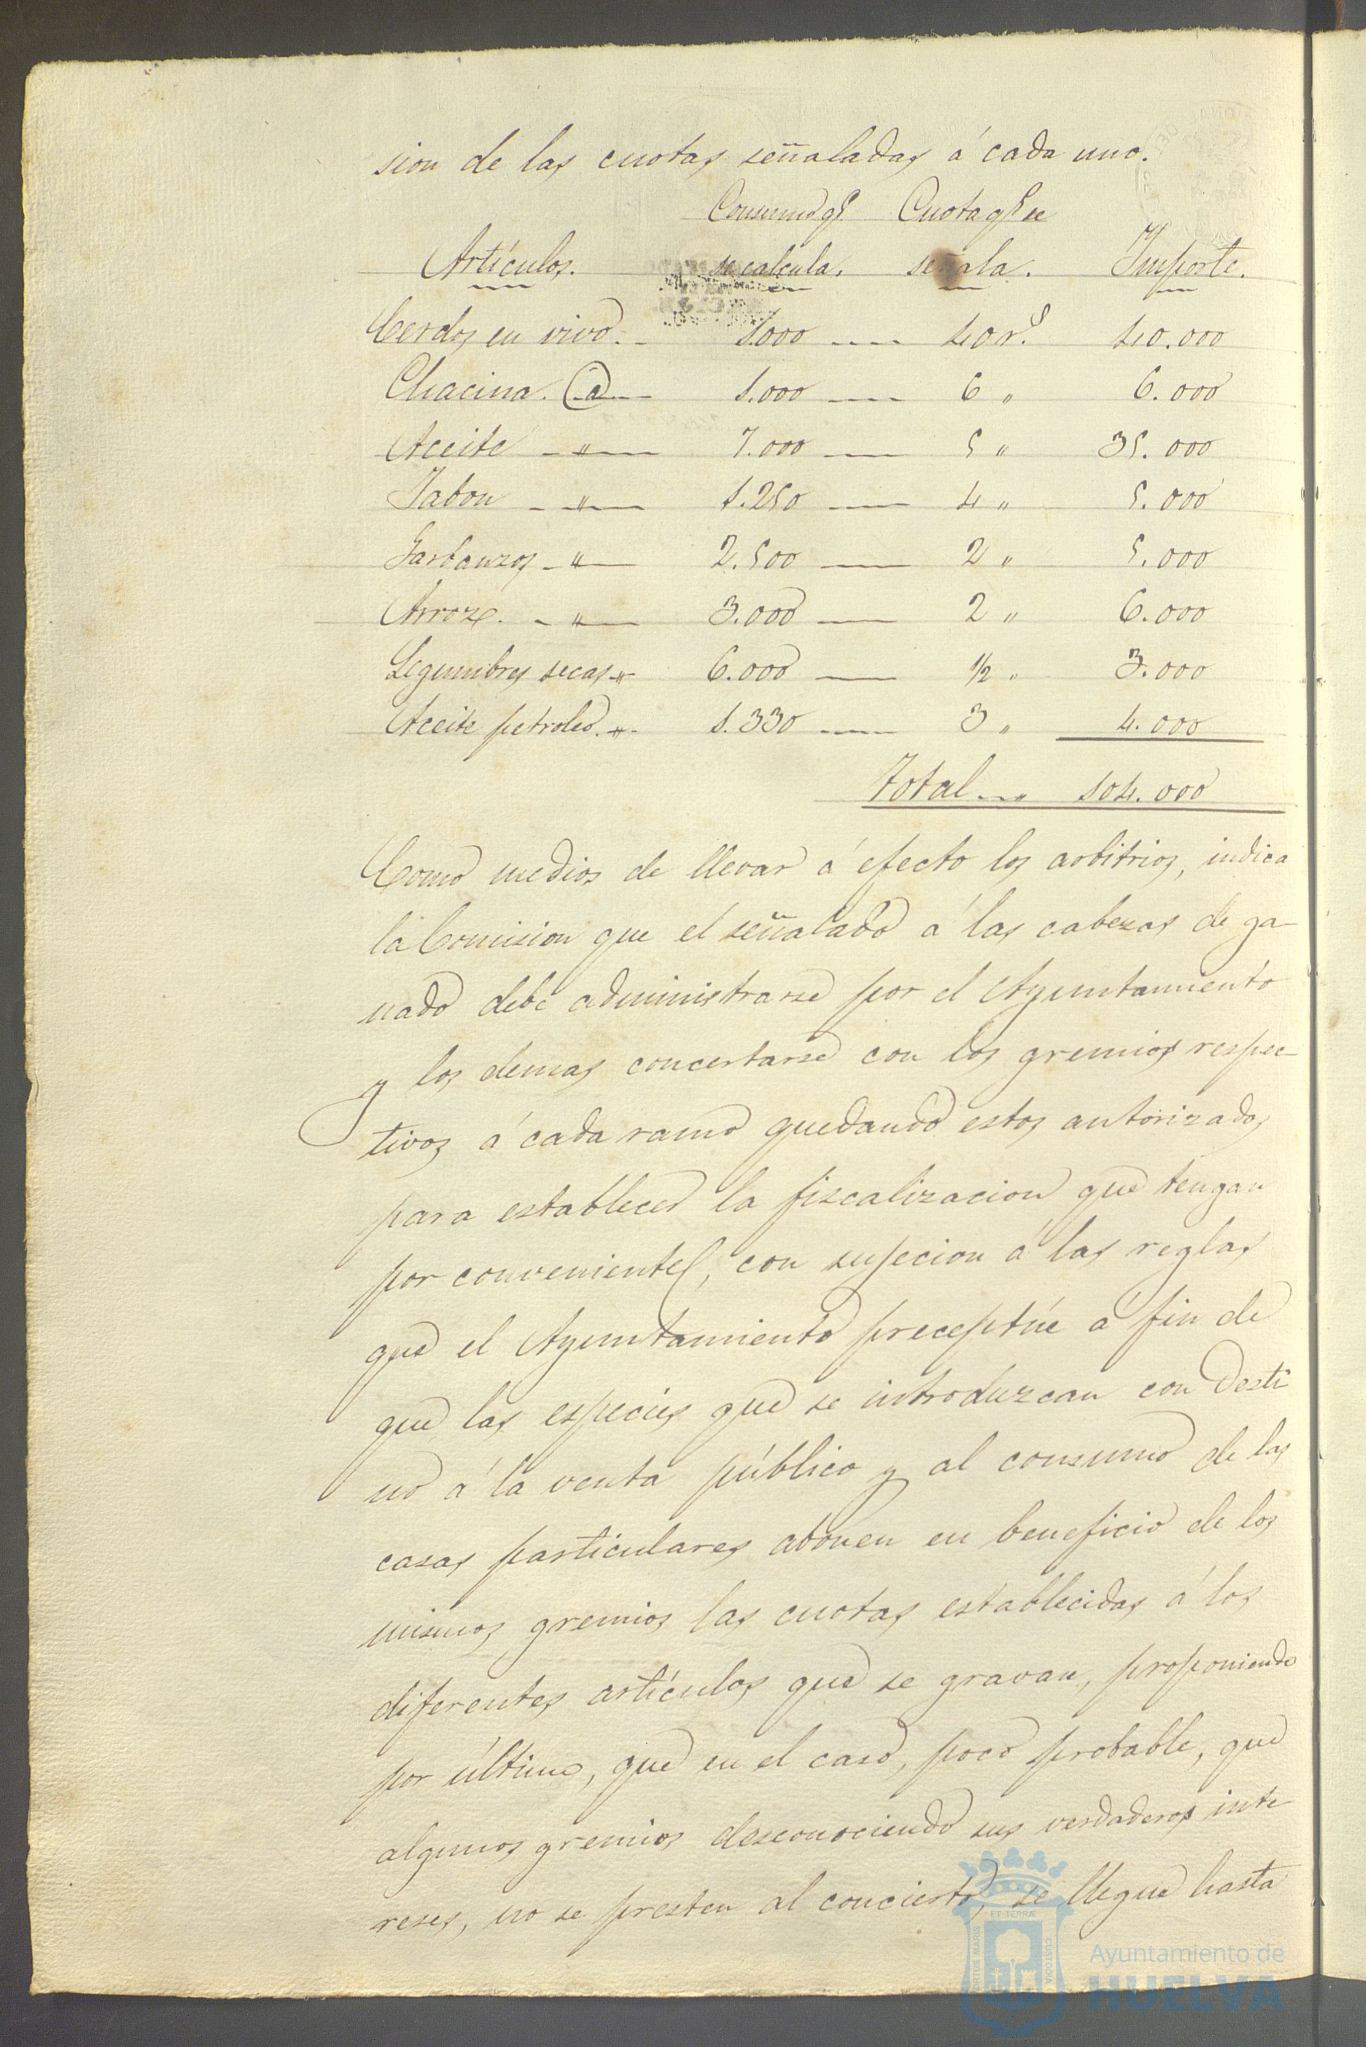 sion de las cuotas señaladas á cada uno.
Consumo qe. Cuota qe. se
Artículos. se calcula. señala. Importe.
Cerdos en vivo. 1.000 40 rs. 40.000
Chacina. @ 1.000 6 " 6.000
Aceite " 7.000 5 " 35.000
Jabon " 1.250 4 " 5.000
Garbanzos " 2.500 2 " 5.000
Arroz. " 3.000 2 " 6.000
Legumbres secas " 6.000 1/2 " 3.000
Aceite petroleo. " 1.330 3 " 4.000
Total " 104.000
Como medios de llevar á efecto los arbitrios, indica
la Comision que el señalado á las cabezas de ga-
nado debe administrarse por el Ayuntamiento
y los demas concertarse con los gremios respec-
tivos á cada ramo quedando estos autorizados
para establecer la fiscalizacion que tengan
por conveniente, con sujecion á las reglas
que el Ayuntamiento preceptúe á fin de
que las especies que se introduzcan con desti
no á la venta público y al consumo de las
casas particulares abonen en beneficio de los
mismos gremios las cuotas establecidas á los
diferentes artículos que se gravan, proponiendo
por último, que en el caso, poco probable, que
algunos gremios desconociendo sus verdaderos inte
reses, no se presten al concierto, se llegue hasta
Ayuntamiento de
HUELVA